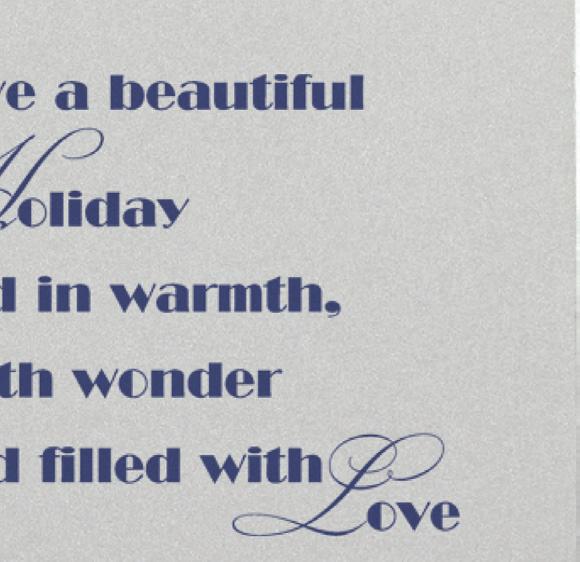 ve a beautiful
Holiday
d in warmth,
th wonder
d filled with
Love